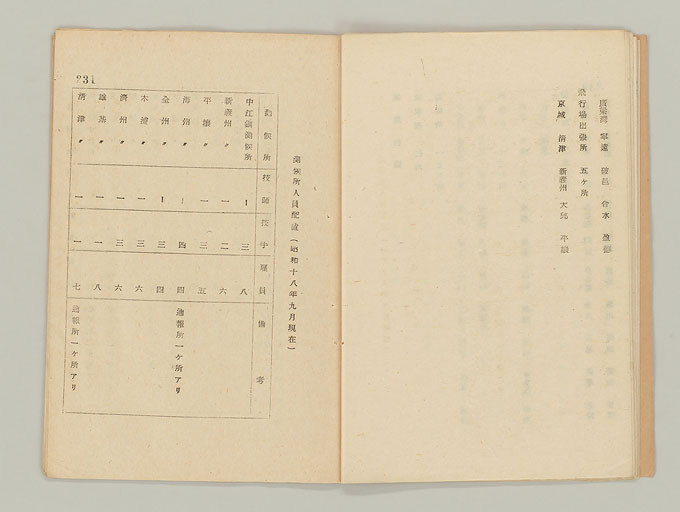 寧遠
合水
飛行場出張所 五ケ所
京城 清津 新義州 大邱 平壤
測候所人員配置(昭和十八年九月現在)
測候所 技師 技手 雇員 備考
中江鎮測候所 | 三 八
新義州〃 一 二 六
平壤〃 一 三 五
海州〃 | 四 四 通報所一ケ所アリ
全州〃 | 三 四
木浦〃 一 三 六
濟州〃 一 三 六
雄基〃 一 一 八
清津〃 一 一 七 通報所一ケ所アリ
231